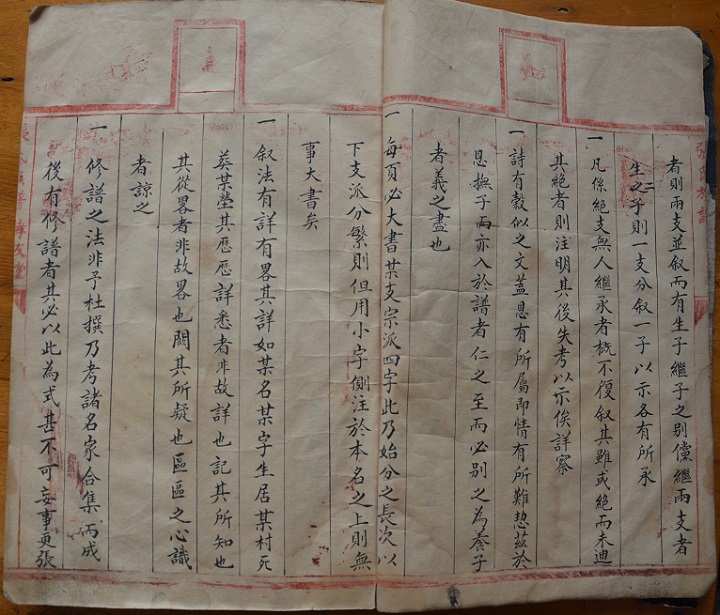 者則兩支並叙而有生子繼子之别儻繼兩支者
生二子則一支分叙一子以示各有所承
一 凡係絶支無人繼承者概不復叙其雖或絶而未迪
其絶者則注明其後失考以示俟詳察
一 詩有榖似之文蓋恩有所屬即情有所難恝茲於
恩撫子而亦入於譜者仁之至而必别之為養子
者義之盡也
一 每頁必大書某支宗派四字此乃始分之長次以
下支派分繁則但用小字側注於本名之上則無
事大書矣
一 叙法有詳有畧其詳如某名某字生居某村死
葬某塋其應應詳悉者非故詳也記其所知也
其從畧者非故畧也闕其所疑也區區之心識
者諒之
一 修譜之法非予杜撰乃考諸名家合集而成
後有修譜者其必以此為式甚不可妄事更張